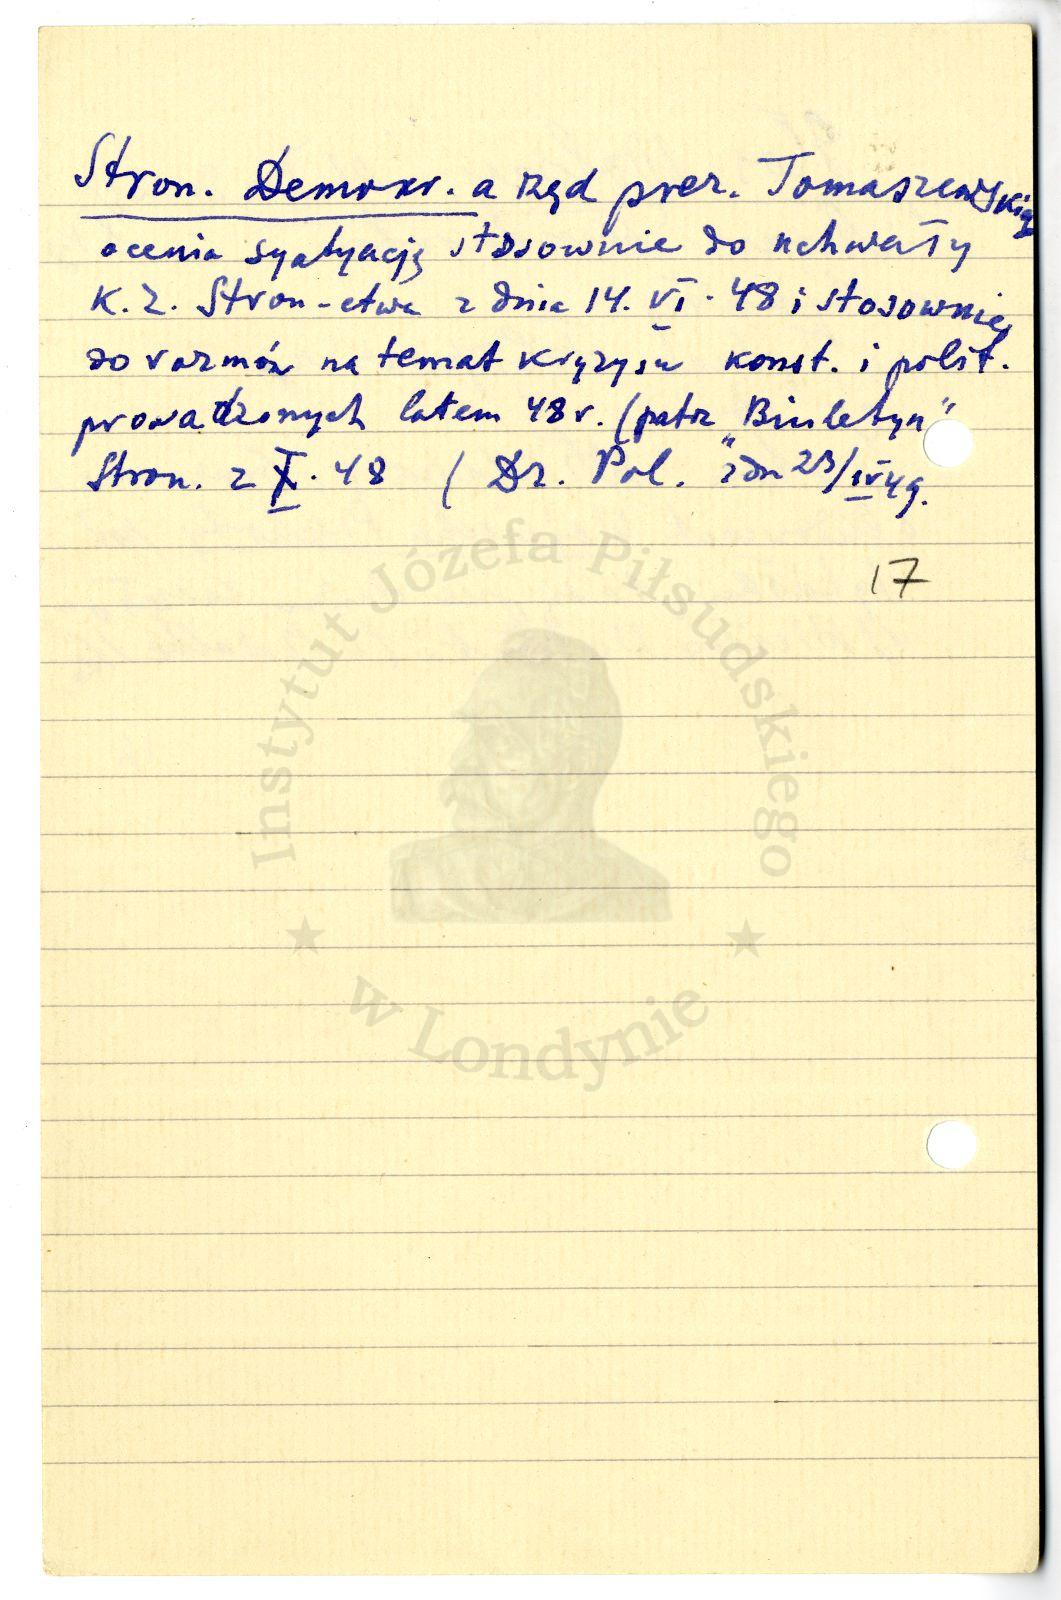 Stron. Demokr. a rząd prez. Tomaszewskiego
ocenia sytyację stosownie do uchwały
K.Z. Stron-etwa z dnia 14. VI. 48 i stosownie
do rozmów na temat kryzysu konst. i polit.
prowadzonych latem 48 r. (patrz "Biuletyn"
Stron. z X. 48 ( Dz. Pol. z dn 23/IV 49.
17
Instytut Józefa Piłsudskiego
w Londynie